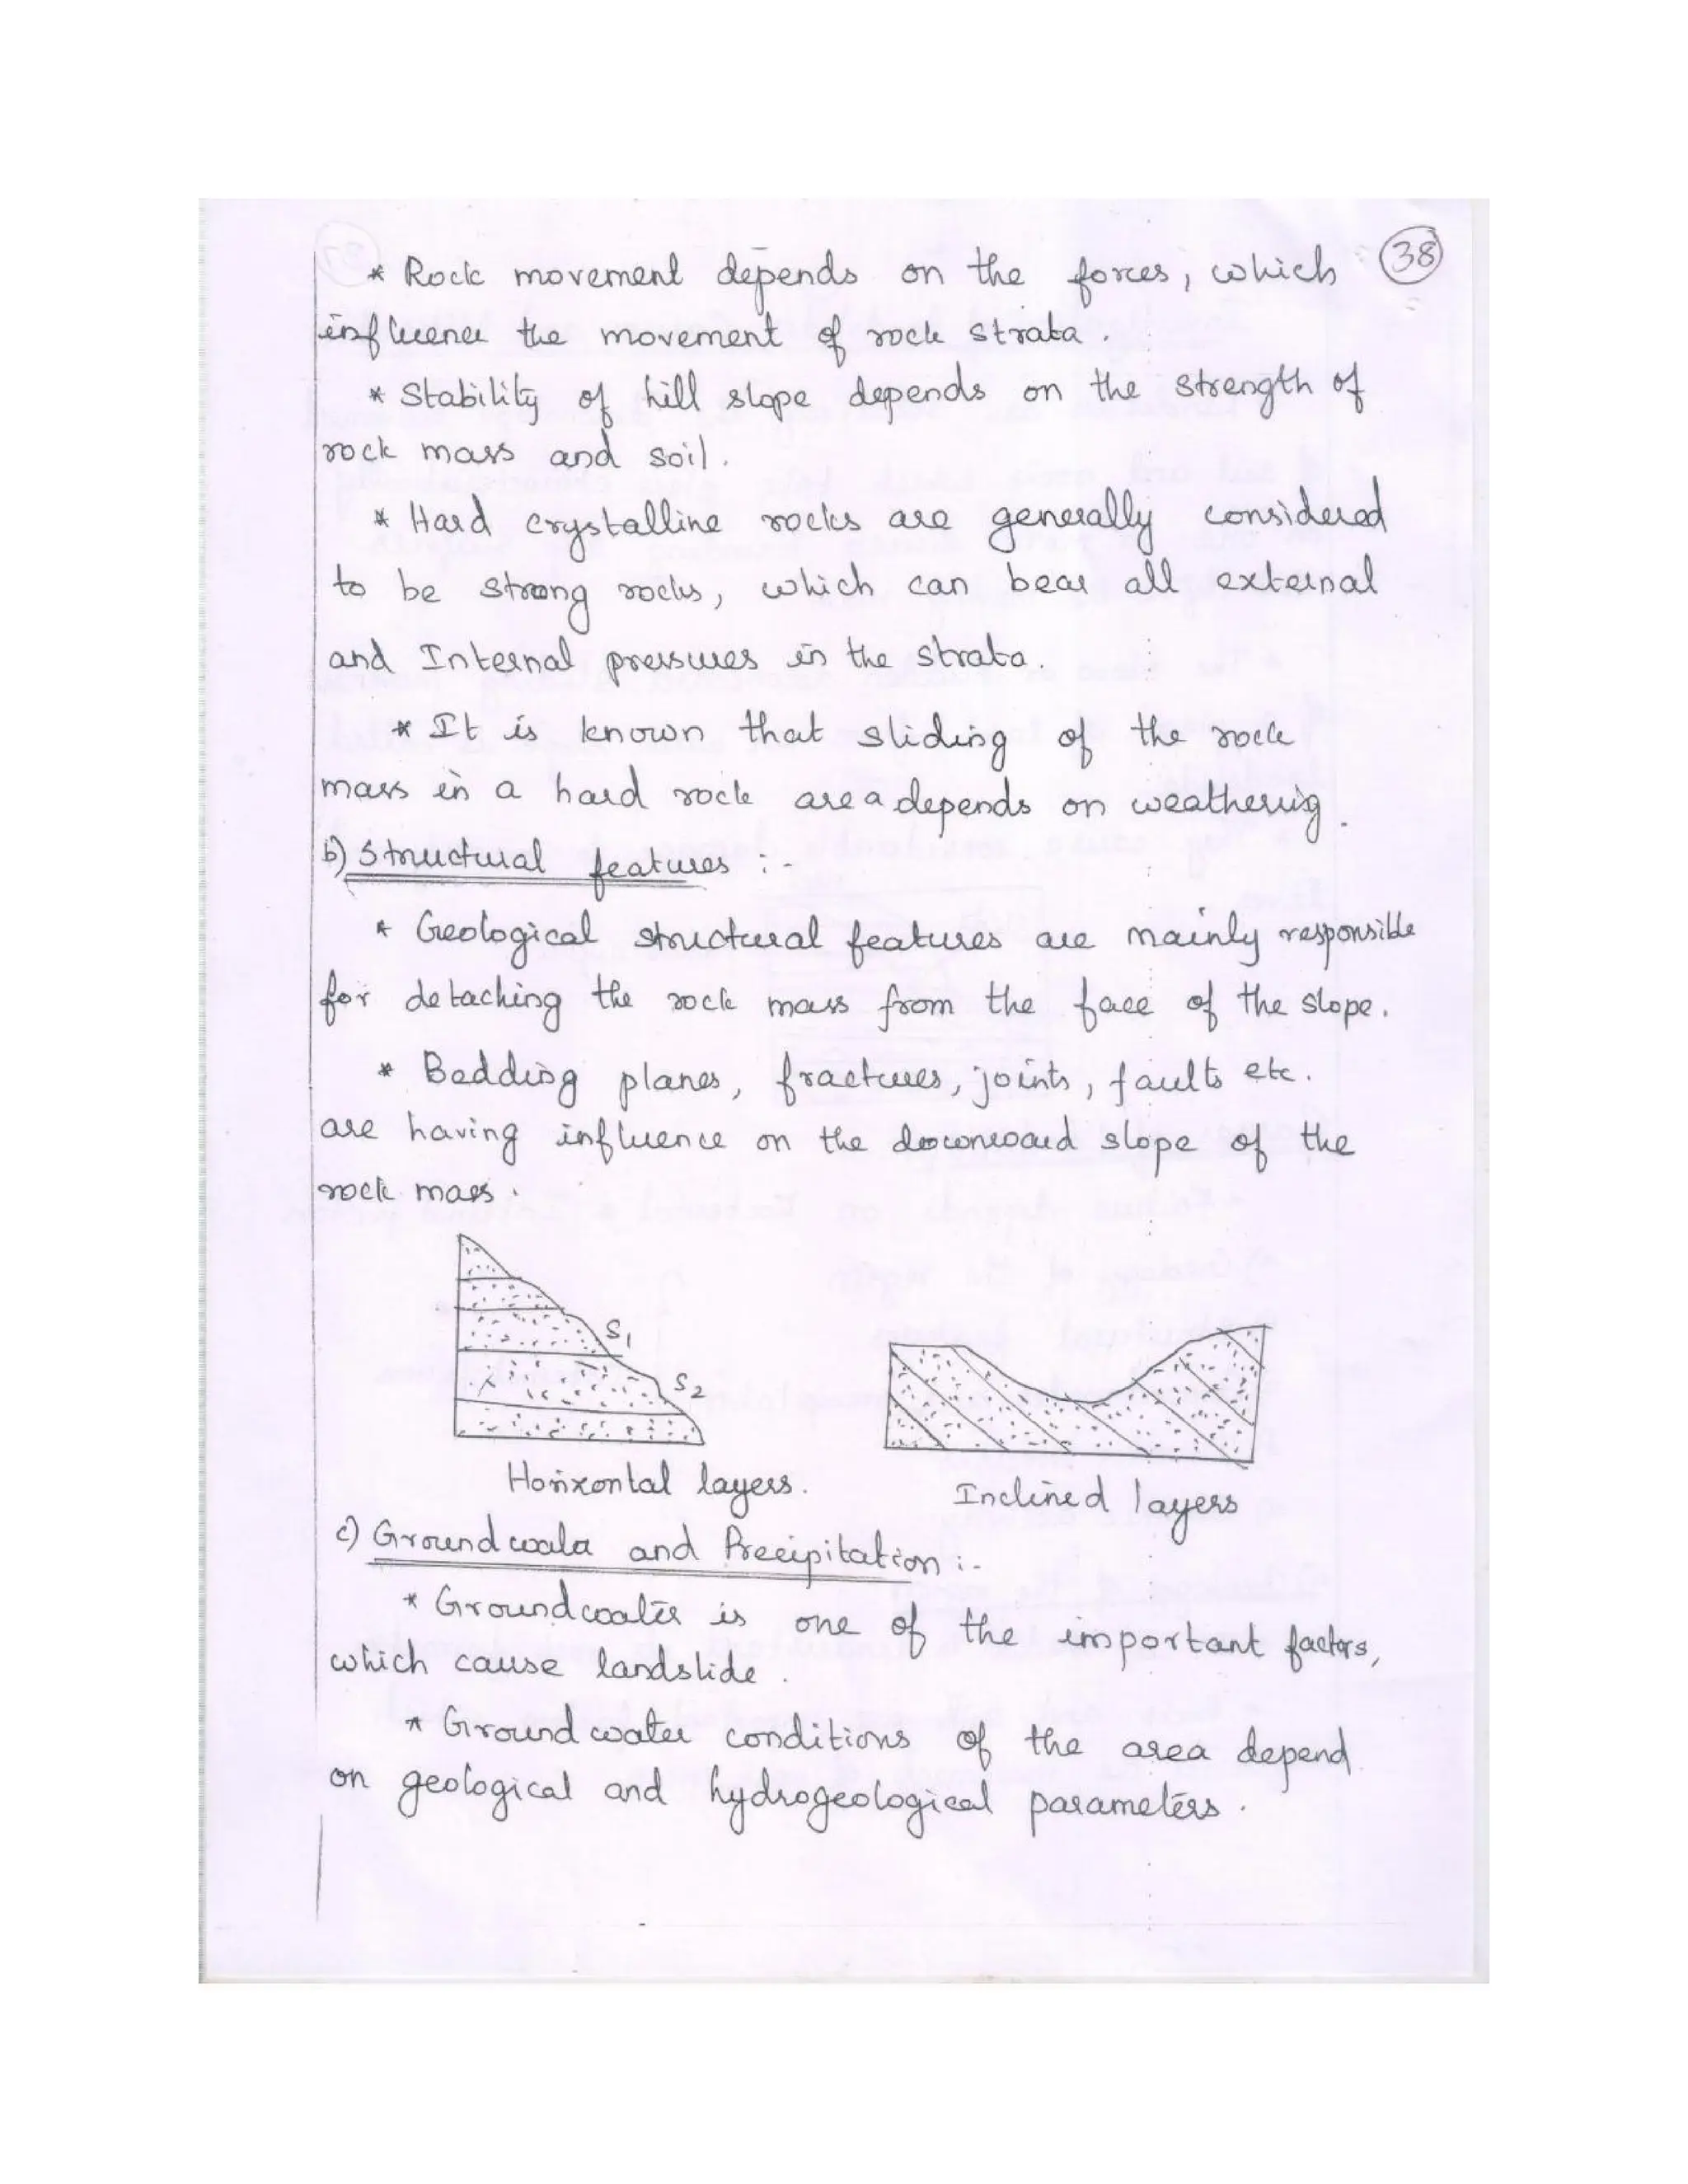 38
* Rock movement depends on the forces, which
influence the movement of rock strata.
* Stability of hill slope depends on the strength of
rock mass and soil.
* Hard crystalline rocks are generally considered
to be strong rocks, which can bear all external
and Internal pressures in the strata.
* It is known that sliding of the rock
mass in a hard rock area depends on weathering.
b) Structural features :-
* Geological structural features are mainly responsible
for detaching the rock mass from the face of the slope.
* Bedding planes, fractures, joints, faults etc.
are having influence on the downward slope of the
rock mass.
S1
S2
Horizontal layers.
Inclined layers
c) Groundwater and Precipitation :-
* Groundwater is one of the important factors,
which cause landslide.
* Groundwater conditions of the area depend
on geological and hydrogeological parameters.